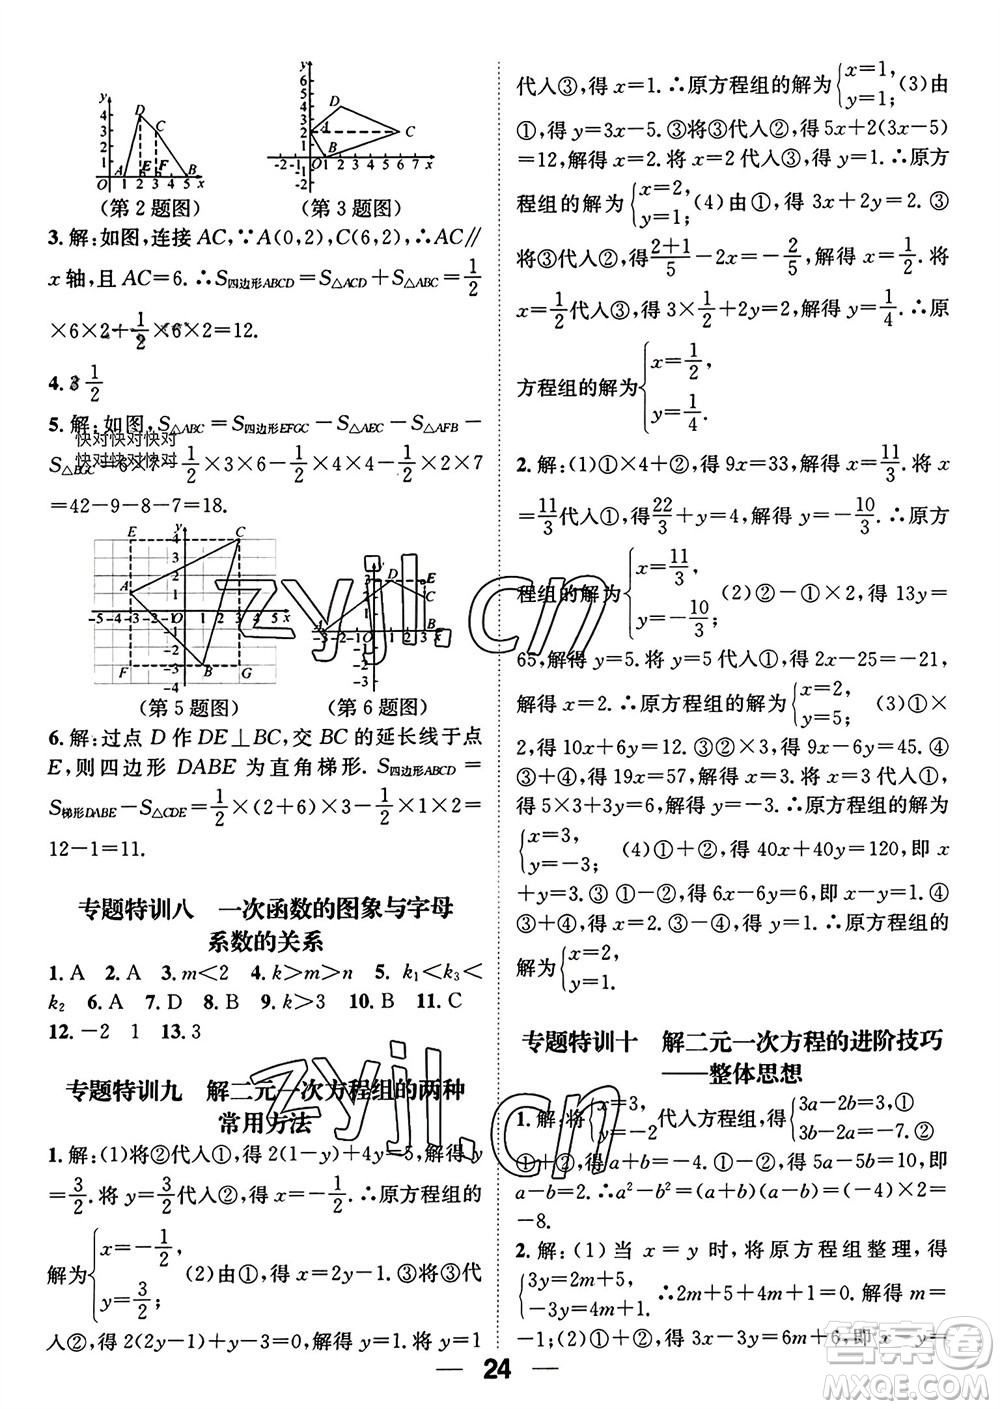 (第2题图) (第3题图)
3.解:如图,连接AC,∵A(0,2),C(6,2),∴AC∥
x轴,且AC=6.∴S四边形ABCD=S△ACD+S△ABC=1/2
×6×2+1/2×6×2=12.
4.3 1/2
5.解:如图,S△ABC=S四边形EFGC-S△AEC-S△AFB-
S△BGC=6×7-1/2×3×6-1/2×4×4-1/2×2×7
=42-9-8-7=18.
快对快对快对
快对快对快对
(第5题图) (第6题图)
6.解:过点D作DE⊥BC,交BC的延长线于点
E,则四边形DABE为直角梯形.S四边形ABCD=
S梯形DABE-S△CDE=1/2×(2+6)×3-1/2×1×2=
12-1=11.
专题特训八 一次函数的图象与字母
系数的关系
1.A 2.A 3.m<2 4.k>m>n 5.k₁<k₃<
k₂ 6.A 7.D 8.B 9.k>3 10.B 11.C
12.-2 1 13.3
专题特训九 解二元一次方程组的两种
常用方法
1.解:(1)将①代入②,得2(1-y)+4y=5,解得y
=3/2.将y=3/2代入②,得x=-1/2.∴原方程组的
解为{x=-1/2, y=3/2; (2)由①,得x=2y-1.③将③代
入②,得2(2y-1)+y-3=0.解得y=1.将y=1
代入③,得x=1.∴原方程组的解为{x=1, y=1; (3)由
①,得y=3x-5.③将③代入②,得5x+2(3x-5)
=12,解得x=2.将x=2代入③,得y=1.∴原方
程组的解为{x=2, y=1; (4)由①,得3x+2y=2.③
将③代入②,得(2+1)/5-2x=-2/5.解得x=1/2.将
x=1/2代入③,得3×1/2+2y=2.解得y=1/4.∴原
方程组的解为{x=1/2, y=1/4.
2.解:(1)①×4+②,得9x=33,解得x=11/3.将x
=11/3代入①,得22/3+y=4,解得y=-10/3.∴原方
程组的解为{x=11/3, y=-10/3; (2)②-①×2,得13y=
65,解得y=5.将y=5代入①,得2x-25=-21,
解得x=2.∴原方程组的解为{x=2, y=5; (3)①×
2,得10x+6y=12.③②×3,得9x-6y=45.④
③+④,得19x=57,解得x=3.将x=3代入①,
得5×3+3y=6,解得y=-3.∴原方程组的解为
{x=3, y=-3; (4)①+②,得40x+40y=120,即x
+y=3.③①-②,得6x-6y=6,即x-y=1.④
③+④,得x=2.③-④,得y=1.∴原方程组的
解为{x=2, y=1.
专题特训十 解二元一次方程的进阶技巧
——整体思想
1.解:将{x=3, y=-2代入方程组,得{3a-2b=3,① 3b-2a=-7.②
①+②,得a+b=-4.①-②,得5a-5b=10,即
a-b=2.∴a²-b²=(a+b)(a-b)=(-4)×2=
-8.
2.解:(1)当x=y时,将原方程组整理,得
{3y=2m+5, -3y=4m+1. ∴2m+5+4m+1=0.解得m=
-1;(2)①+②,得3x-3y=6m+6,即x-y=
24
zyjl.cn
zyjl.cn
答案圈
MXQE.COM